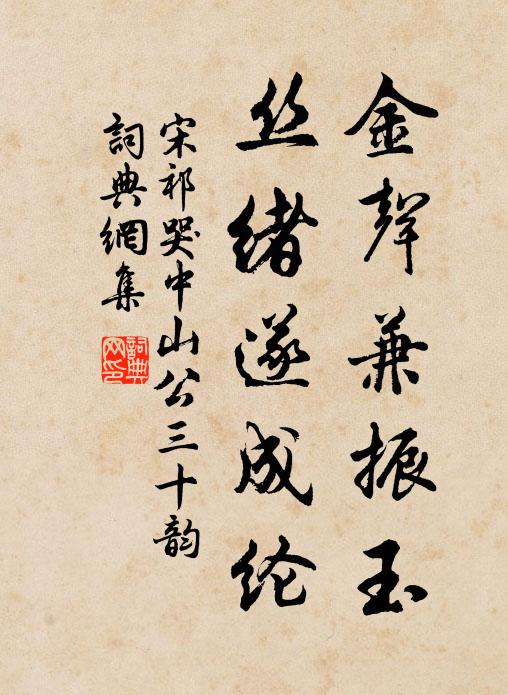 金聲兼振玉
丝緒遂成纶
宋祁哭中山公三十韵
詞典網集
詞典
网印